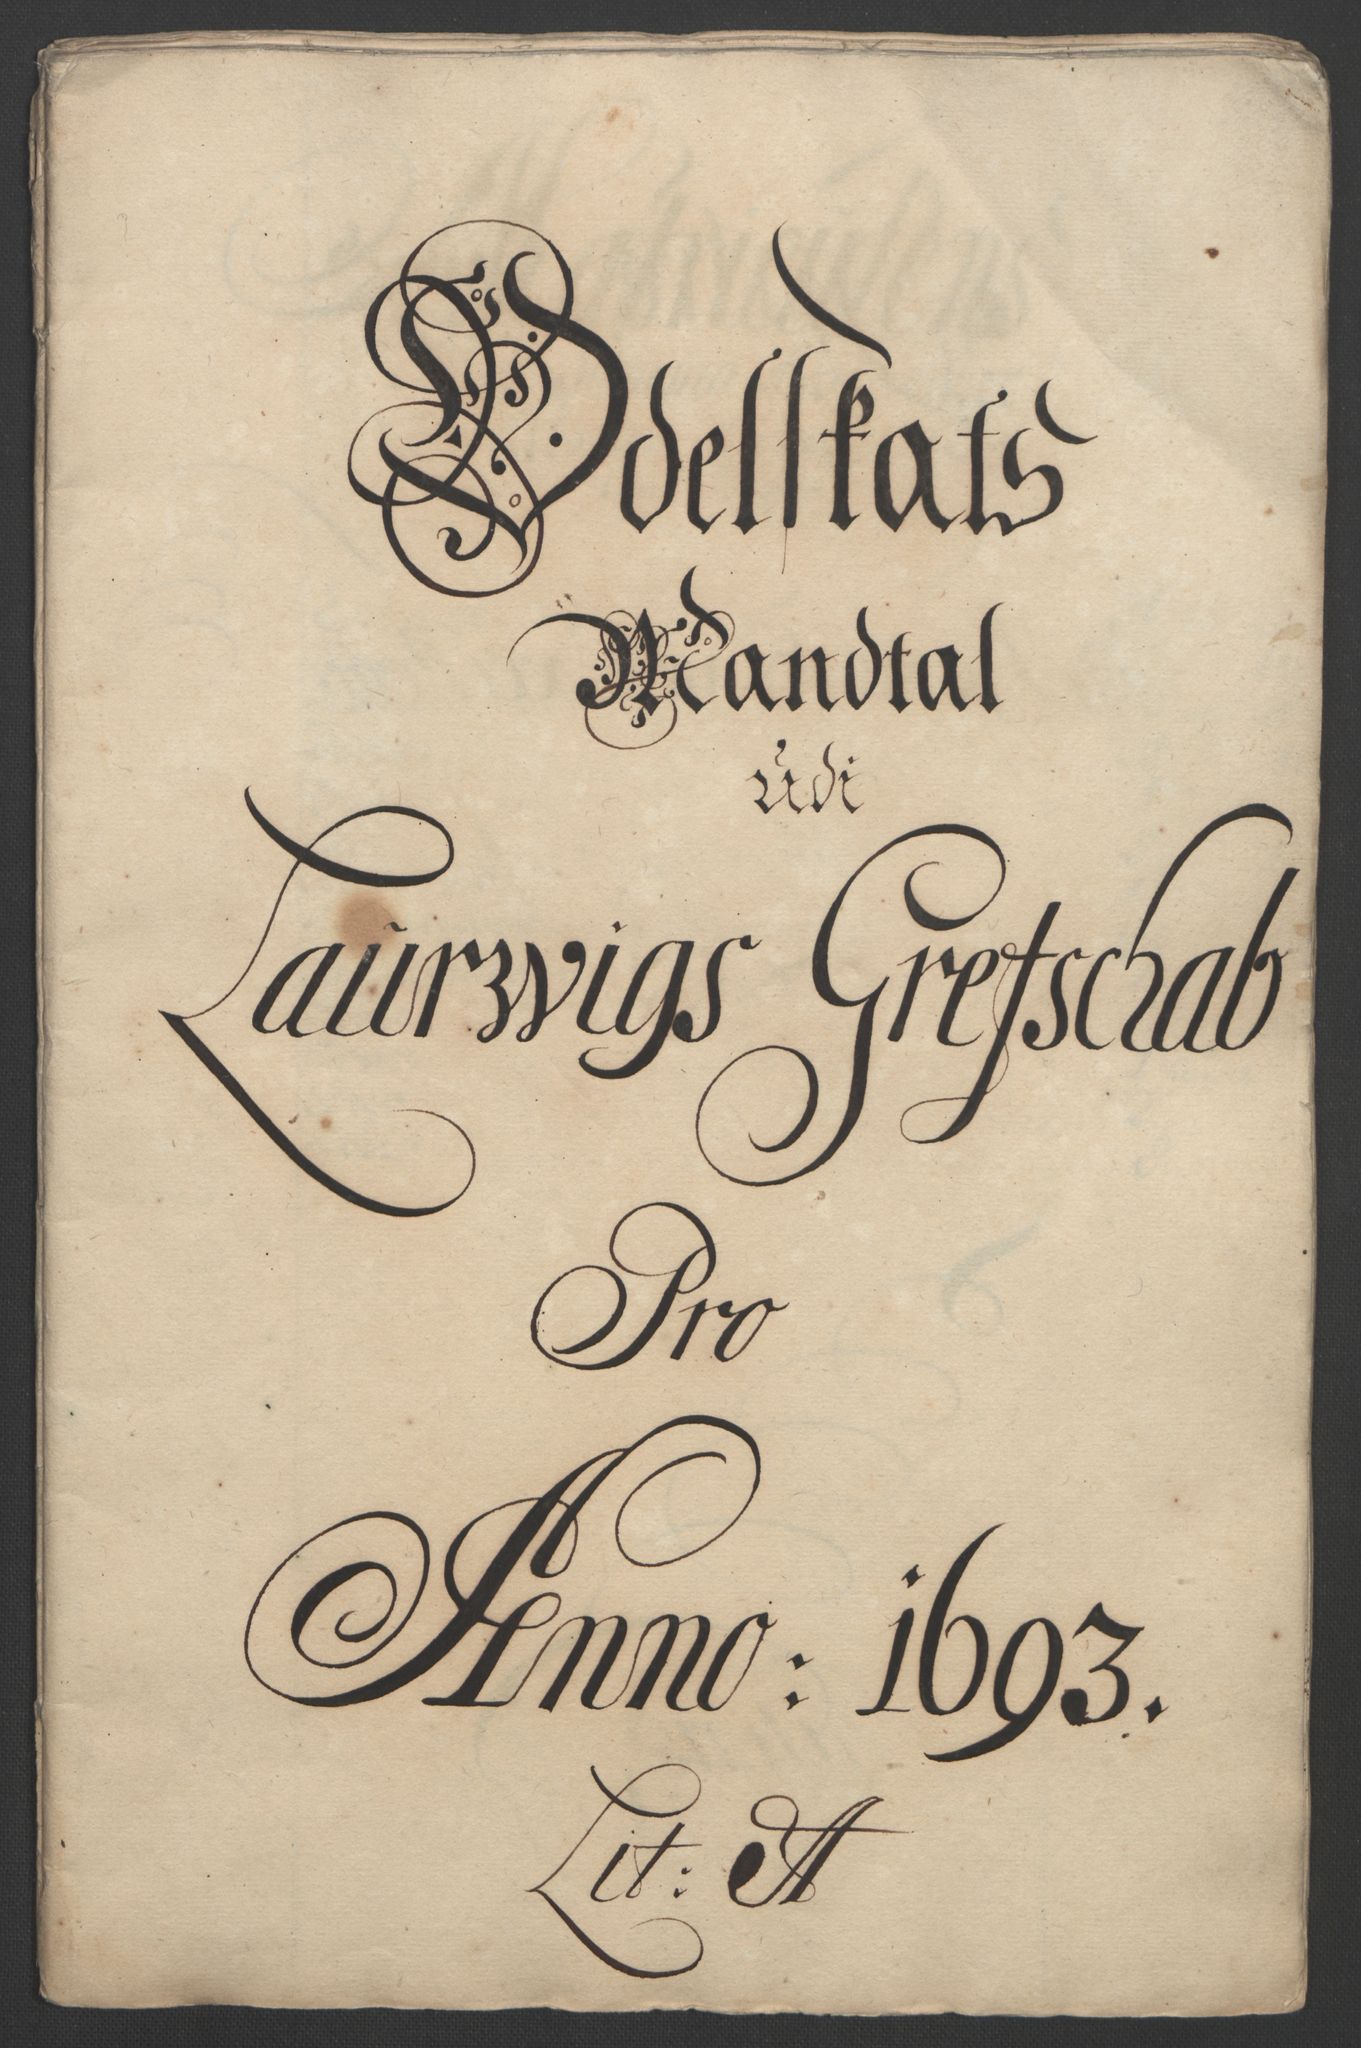 Odelskats
Mandtal
Udi
Laurwigs Grefschab
Pro
Anno: 1693.
Lit: A